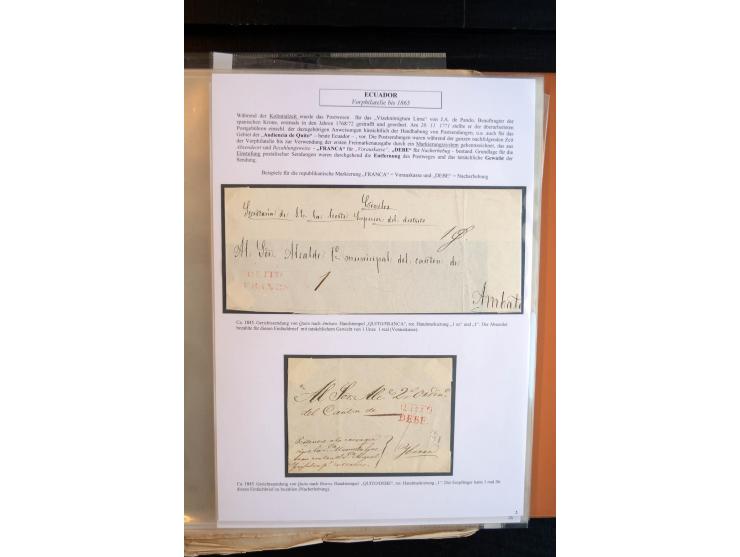 ECUADOR
Vorphilatelie bis 1865
Während der Kolonialzeit wurde das Postwesen für das „Vizekönigtum Lima" von J.A. de Pando, Beauftragter der
spanischen Krone, erstmals in den Jahren 1768/72 gestrafft und geordnet. Am 26. 11. 1771 stellte er der überarbeiteten
Postgebühren einschl. der dazugehörigen Anweisungen hinsichtlich der Handhabung von Postsendungen, u.a. auch für das
Gebiet der „Audiencia de Quito" - heute Ecuador -, vor. Die Postsendungen waren während der ganzen nachfolgenden Zeit
der Vorphilatelie bis zur Verwendung der ersten Freimarkenausgabe durch ein Markierungssystem gekennzeichnet, das aus
Absenderort und Bezahlungsweise - „FRANCA" für „Vorauskasse"; „DEBE" für Nacherhebung - bestand. Grundlage für die
Einstufung postalischer Sendungen waren durchgehend die Entfernung des Postweges und das tatsächliche Gewicht der
Sendung.
Beispiele für die republikanische Markierung „FRANCA" = Vorauskasse und „DEBE" = Nacherhebung
Al Sor. Alcalde 1o. municipal del canton de
QUITO
FRANCA
1
Ambato
Ca. 1845 Gerichtssendung von Quito nach Ambato. Handstempel „QUITO/FRANCA", rot. Handmarkierung „1 oz" und „1". Der Absender
bezahlte für diesen Einfachbrief mit tatsächlichem Gewicht von 1 Unze 1 real (Vorauskasse).
Al Sor. Alc.e 2o.
del Canton de
QUITO
DEBE
Ca. 1845 Gerichtssendung von Quito nach Ibarra. Handstempel „QUITO/DEBE", rot. Handmarkierung „1". Der Empfänger hatte 1 real für
diesen Einfachbrief zu bezahlen (Nacherhebung).